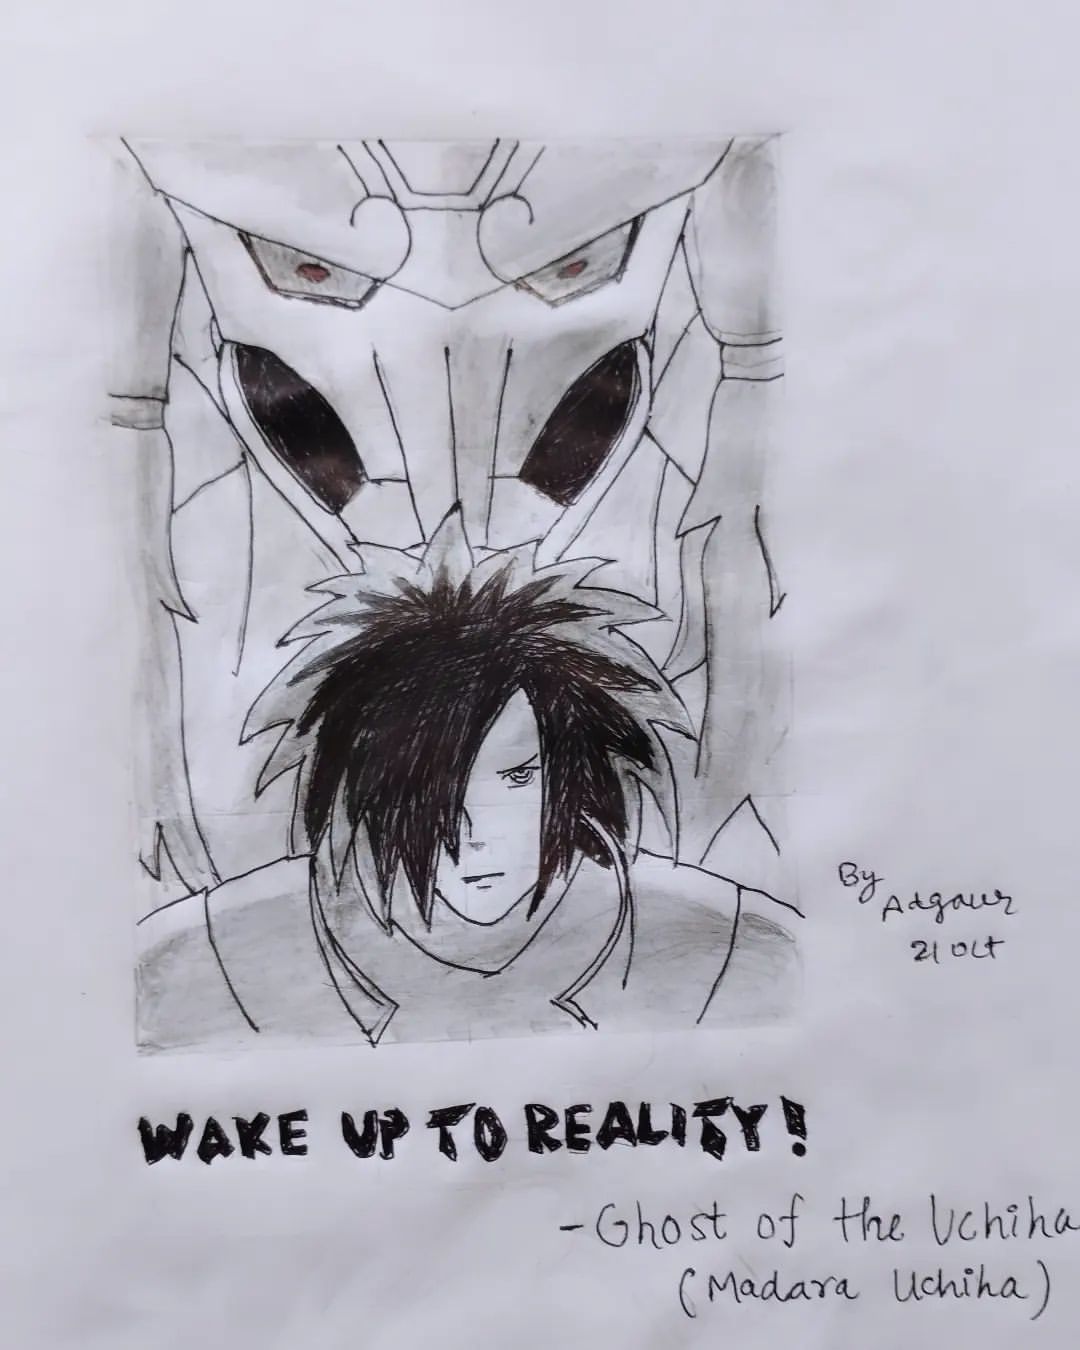 By
Adgaur
21 Oct
WAKE UP TO REALITY!
- Ghost of the Uchiha
(Madara Uchiha)